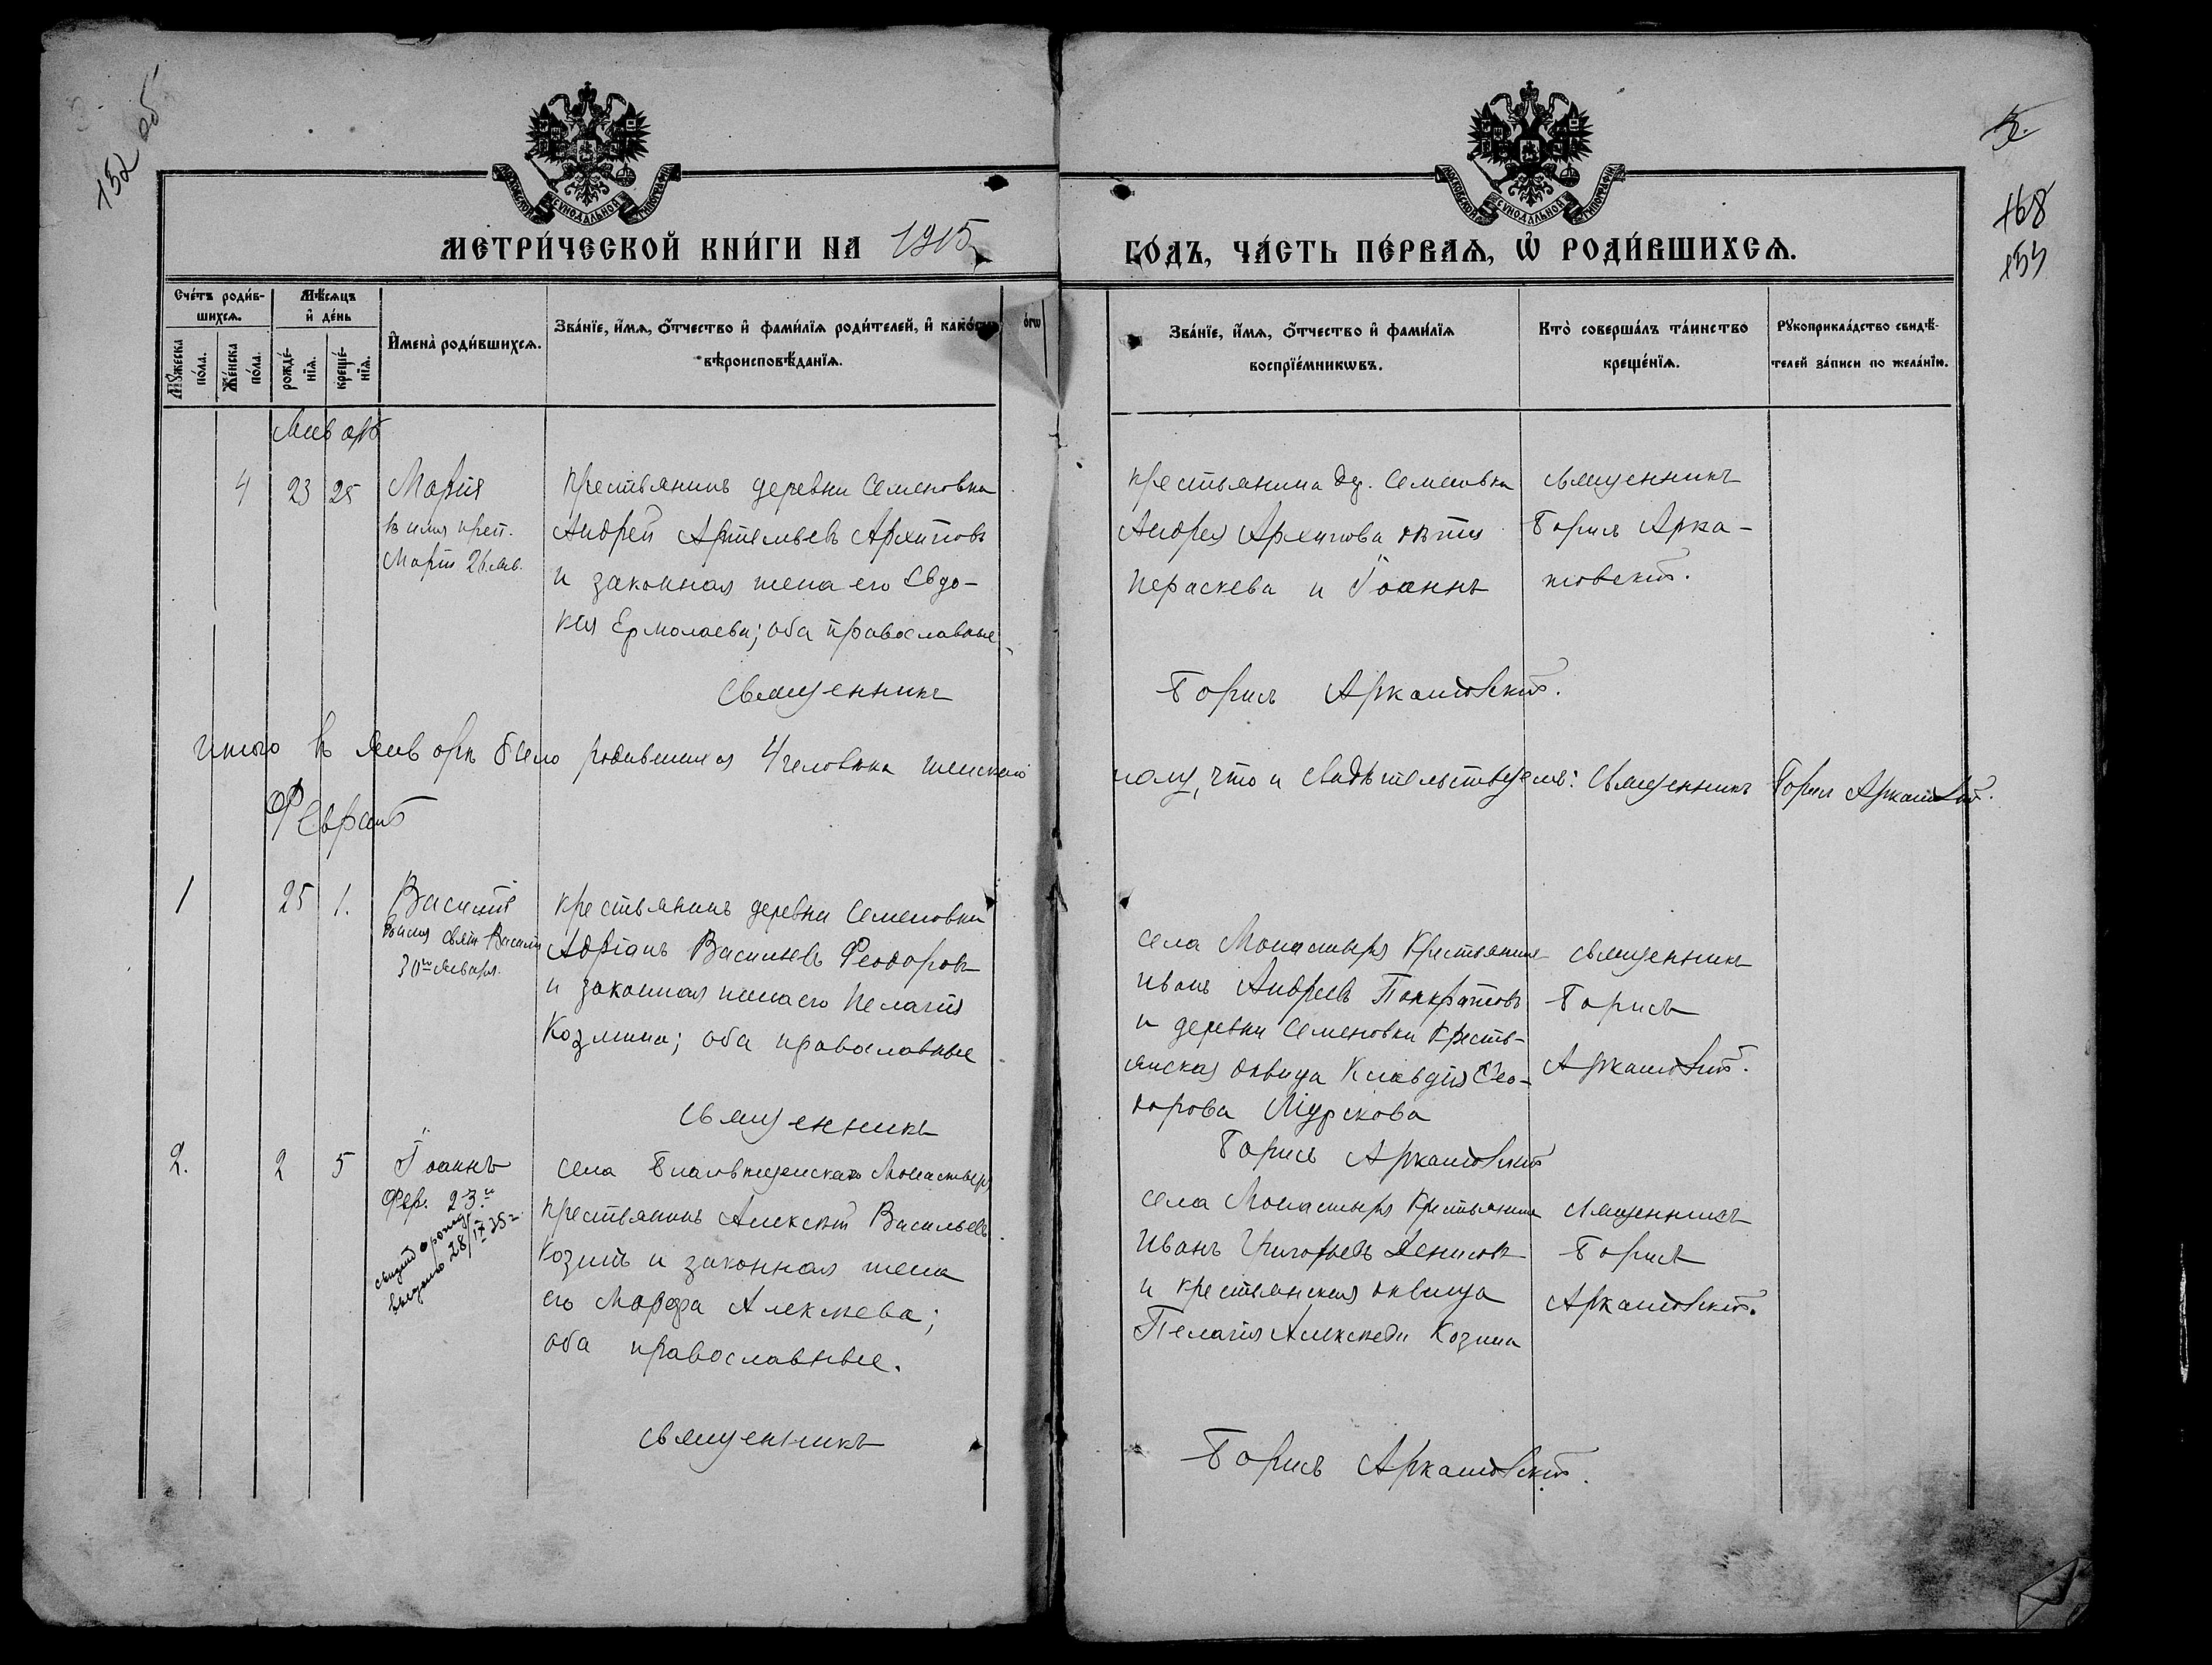 152 об
5.
168
153
МОСКОВСКОЙ СѴНОДАЛЬНОЙ ТИПОГРАФІИ
МОСКОВСКОЙ СѴНОДАЛЬНОЙ ТИПОГРАФІИ
МЕТРИ́ЧЕСКОЙ КНИ́ГИ НА 1915
ГО́ДЪ, ЧА́СТЬ ПЕ́РВАѦ, Ѡ҆ РОДИ́ВШИХСѦ.
Сче́тъ роди́в-
шихсѧ.
Мꙋ́жеска
по́ла.
Же́нска
по́ла.
Мѣ́сѧцъ
и҆ де́нь
рожде́-
нїѧ.
креще́-
нїѧ.
И҆мена̀ роди́вшихсѧ.
Зва́нїе, и҆́мѧ, ѻ҆́тчество и҆ фами́лїѧ роди́телей, и҆ како́гѡ
вѣроисповѣ́данїѧ.
Зва́нїе, и҆́мѧ, ѻ҆́тчество и҆ фами́лїѧ
воспрїе́мникѡвъ.
Кто̀ соверша́лъ та́инство
креще́нїѧ.
Рꙋкоприкла́дство свидѣ́-
телей за́писи по жела́нїю.
Январь
4 23 25
Марія
въ имя преп.
Маріи 26 янв.
Крестьянинъ деревни Семеновки
Андрей Артемьевъ Архиповъ
и законная жена его Евдо-
кія Ермолаева; оба православные
крестьянина дер. Семеновки
Андрея Архипова дѣти
Параскева и Іоаннъ
священникъ
Борисъ Арка-
товскій.
Священникъ
Борисъ Аркатовскій.
Итого въ январѣ было родившихся 4 человѣка женскаго
полу, что и свидѣтельствуемъ: Священникъ Борисъ Аркатовскій.
Февраль
1 25 1.
Василій
во имя свят. Василія
30го Января.
крестьянинъ деревни Семеновки
Адріанъ Васильевъ Феодоровъ
и законная жена его Пелагія
Козмина; оба православные
села Монастыря крестьянинъ
Иванъ Андреевъ Панкратовъ
и деревни Семеновки кресть-
янская дѣвица Клавдія Ѳео-
дорова
священникъ
Борисъ
Аркатовскій.
Священникъ
Борисъ Аркатовскій
2. 2 5
Іоаннъ
Фев. 23го
свидет о рожд
выдано 28/IX 35 г.
села Благовѣщенскаго Монастыря
крестьянинъ Алексѣй Васильевъ
Козинъ и законная жена
его Марфа Алексѣева;
оба православные.
села Монастыря крестьянинъ
Иванъ Григорьевъ Денисовъ
и крестьянская дѣвица
Пелагія Алексѣева Козина
священникъ
Борисъ
Аркатовскій.
священникъ
Борисъ Аркатовскій.